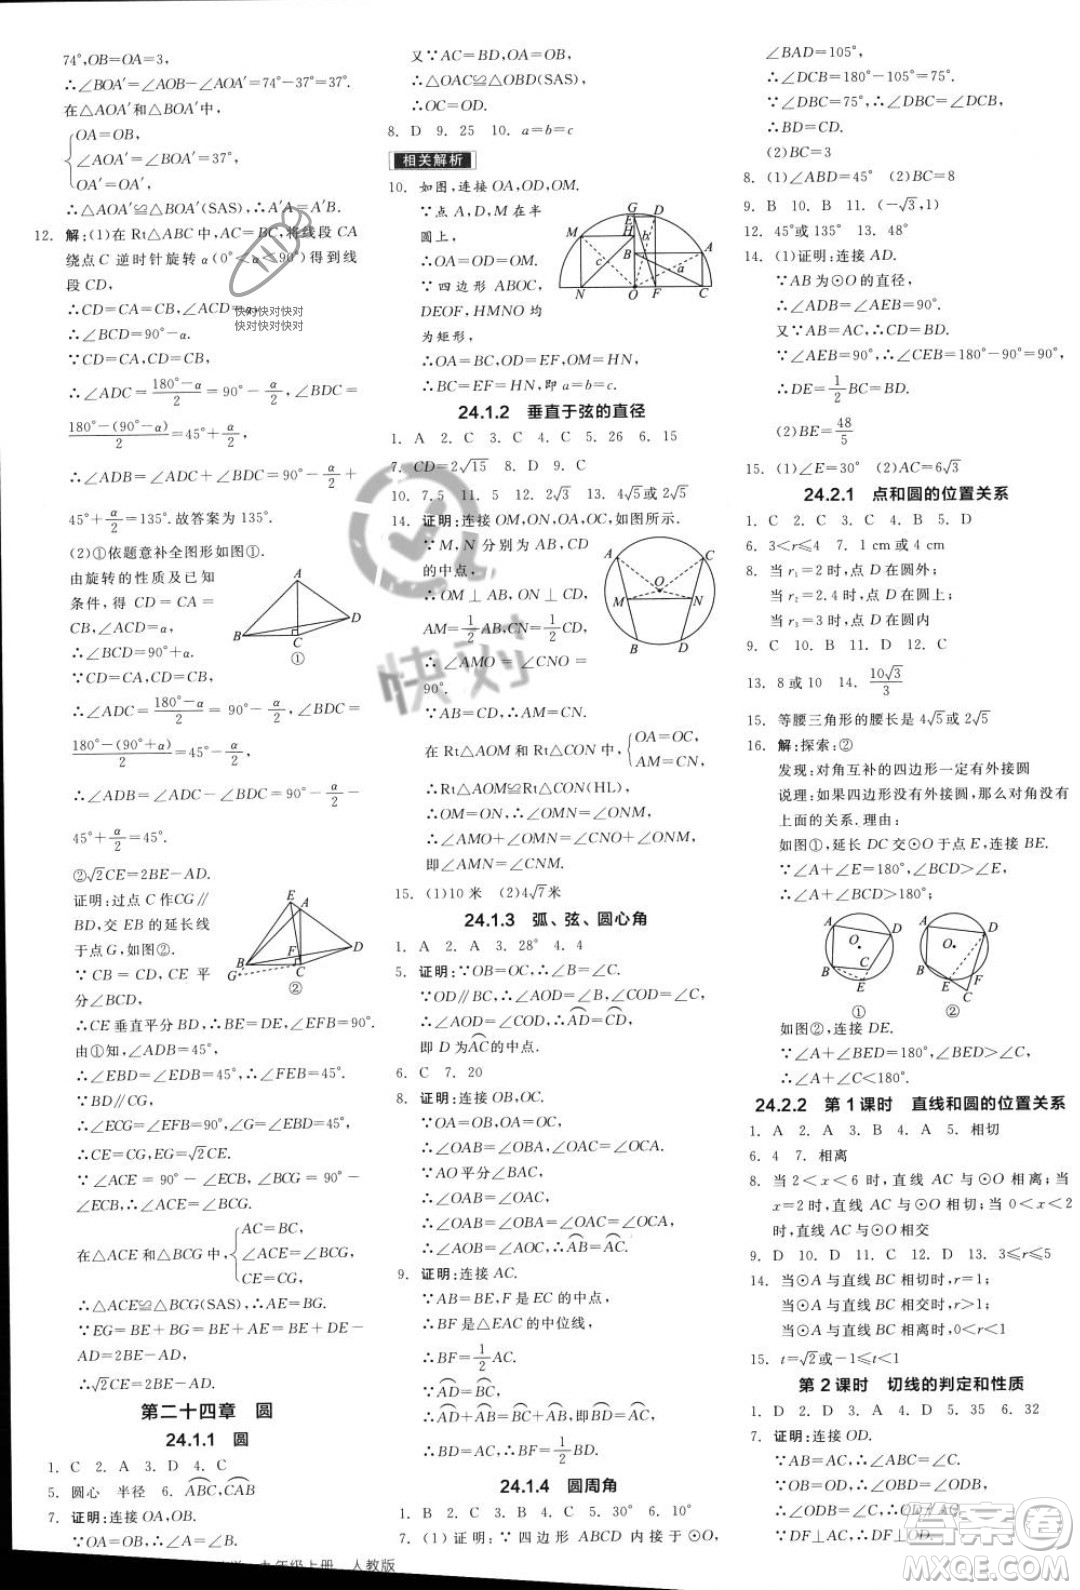 74°,OB=OA=3,
∴∠BOA′=∠AOB-∠AOA′=74°-37°=37°.
在△AOA′和△BOA′中,
{OA=OB,
∠AOA′=∠BOA′=37°,
OA′=OA′,
∴△AOA′≌△BOA′(SAS),∴A′A=A′B.
12. 解:(1)在 Rt△ABC 中,AC=BC,将线段 CA
绕点 C 逆时针旋转 α(0°<α≤90°)得到线
段 CD,
∴CD=CA=CB,∠ACD=α,
∴∠BCD=90°-α.
∵CD=CA,CD=CB,
∴∠ADC=(180°-α)/2=90°-α/2,∠BDC=
(180°-(90°-α))/2=45°+α/2,
∴∠ADB=∠ADC+∠BDC=90°-α/2+
45°+α/2=135°.故答案为:135°.
(2)①依题意补全图形如图①.
由旋转的性质及已知
条件,得 CD=CA=
CB,∠ACD=α,
∴∠BCD=90°+α.
∵CD=CA,CD=CB,
∴∠ADC=(180°-α)/2=90°-α/2,∠BDC=
(180°-(90°+α))/2=45°-α/2,
∴∠ADB=∠ADC-∠BDC=90°-α/2-
45°+α/2=45°.
②√2CE=2BE-AD.
证明:过点 C 作CG∥
BD,交 EB 的延长线
于点 G,如图②.
∵CB=CD,CE 平
分∠BCD,
∴CE 垂直平分 BD,∴BE=DE,∠EFB=90°.
由①知,∠ADB=45°,
∴∠EBD=∠EDB=45°,∴∠FEB=45°.
∵BD∥CG,
∴∠ECG=∠EFB=90°,∠G=∠EBD=45°,
∴CE=CG,EG=√2CE.
∵∠ACE=90°-∠ECB,∠BCG=90°-
∠ECB,∴∠ACE=∠BCG.
在△ACE 和△BCG 中,{AC=BC,
∠ACE=∠BCG,
CE=CG,
∴△ACE≌△BCG(SAS),∴AE=BG.
∵EG=BE+BG=BE+AE=BE+DE-
AD=2BE-AD,
∴√2CE=2BE-AD.
第二十四章 圆
24.1.1 圆
1. C 2. A 3. D 4. C
5. 圆心 半径 6. ABC,CAB
7. 证明:连接 OA,OB.
∵OA=OB,∴∠OAB=∠OBA.
又∵AC=BD,OA=OB,
∴△OAC≌△OBD(SAS),
∴OC=OD.
8. D 9. 25 10. a=b=c
相关解析
10. 如图,连接 OA,OD,OM.
∵点 A,D,M 在半
圆上,
∴OA=OD=OM.
∵四边形 ABOC,
DEOF,HMNO 均
为矩形,
∴OA=BC,OD=EF,OM=HN,
∴BC=EF=HN,即 a=b=c.
24.1.2 垂直于弦的直径
1. A 2. C 3. C 4. C 5. 26 6. 15
7. CD=2√15 8. D 9. C
10. 7.5 11. 5 12. 2√3 13. 4√5或2√5
14. 证明:连接 OM,ON,OA,OC,如图所示.
∵M,N 分别为 AB,CD
的中点,
∴OM⊥AB,ON⊥CD,
AM=1/2AB,CN=1/2CD,
∴∠AMO=∠CNO=
90°.
∵AB=CD,∴AM=CN.
在 Rt△AOM 和 Rt△CON 中,{OA=OC,
AM=CN,
∴Rt△AOM≌Rt△CON(HL),
∴OM=ON,∴∠OMN=∠ONM,
∴∠AMO+∠OMN=∠CNO+∠ONM,
即∠AMN=∠CNM.
15. (1)10 米 (2)4√7米
24.1.3 弧、弦、圆心角
1. A 2. A 3. 28° 4. 4
5. 证明:∵OB=OC,∴∠B=∠C.
∵OD∥BC,∴∠AOD=∠B,∠COD=∠C,
∴∠AOD=∠COD,∴AD=CD,
即 D 为AC的中点.
6. C 7. 20
8. 证明:连接 OB,OC.
∵OA=OB=OC,
∴∠OAB=∠OBA,∠OAC=∠OCA.
∵AO平分∠BAC,
∴∠OAB=∠OAC,
∴∠OBA=∠OAB=∠OAC=∠OCA,
∴∠AOB=∠AOC,∴AB=AC.
9. 证明:连接 AC.
∵AB=BE,F 是 EC 的中点,
∴BF 是△EAC 的中位线,
∴BF=1/2AC.
∵AD=BC,
∴AD+AB=BC+AB,即BD=AC,
∴BD=AC,∴BF=1/2BD.
24.1.4 圆周角
1. B 2. B 3. B 4. C 5. 30° 6. 10°
7. (1)证明:∵四边形 ABCD 内接于⊙O,
∠BAD=105°,
∴∠DCB=180°-105°=75°.
∵∠DBC=75°,∴∠DBC=∠DCB,
∴BD=CD.
(2)BC=3
8. (1)∠ABD=45° (2)BC=8
9. B 10. B 11. (-√3,1)
12. 45°或135° 13. 48°
14. (1)证明:连接 AD.
∵AB 为⊙O的直径,
∴∠ADB=∠AEB=90°.
又∵AB=AC,∴CD=BD.
∵∠AEB=90°,∴∠CEB=180°-90°=90°,
∴DE=1/2BC=BD.
(2)BE=48/5
15. (1)∠E=30° (2)AC=6√3
24.2.1 点和圆的位置关系
1. C 2. C 3. C 4. B 5. D
6. 3<r≤4 7. 1 cm或 4 cm
8. 当 r₁=2时,点 D在圆外;
当 r₂=2.4时,点 D在圆上;
当 r₃=3时,点 D在圆内
9. C 10. C 11. D 12. C
13. 8或10 14. 10√3/3
15. 等腰三角形的腰长是 4√5或2√5
16. 解:探索:②
发现:对角互补的四边形一定有外接圆
说理:如果四边形没有外接圆,那么对角没有
上面的关系.理由:
如图①,延长 DC交⊙O于点 E,连接 BE.
∵∠A+∠E=180°,∠BCD>∠E,
∴∠A+∠BCD>180°;
如图②,连接 DE.
∵∠A+∠BED=180°,∠BED>∠C,
∴∠A+∠C<180°.
24.2.2 第1课时 直线和圆的位置关系
1. A 2. A 3. B 4. A 5. 相切
6. 4 7. 相离
8. 当 2<x<6 时,直线 AC 与⊙O 相离;当
x=2 时,直线 AC 与⊙O 相切;当 0<x<2
时,直线 AC与⊙O相交
9. D 10. D 11. C 12. D 13. 3≤r≤5
14. 当⊙A 与直线 BC 相切时,r=1;
当⊙A 与直线 BC 相交时,r>1;
当⊙A 与直线 BC 相离时,0<r<1
15. t=√2或-1≤t<1
第2课时 切线的判定和性质
1. D 2. D 3. A 4. D 5. 35 6. 32
7. 证明:连接 OD.
∵AB=AC,∴∠ABC=∠C.
∵OB=OD,∴∠ABC=∠ODB,
∴∠ODB=∠C,∴OD∥AC.
∵DF⊥AC,∴DF⊥OD.
九年级上册 人教版
快对快对快对
快对快对快对
快对
答案圈
MXQE.COM